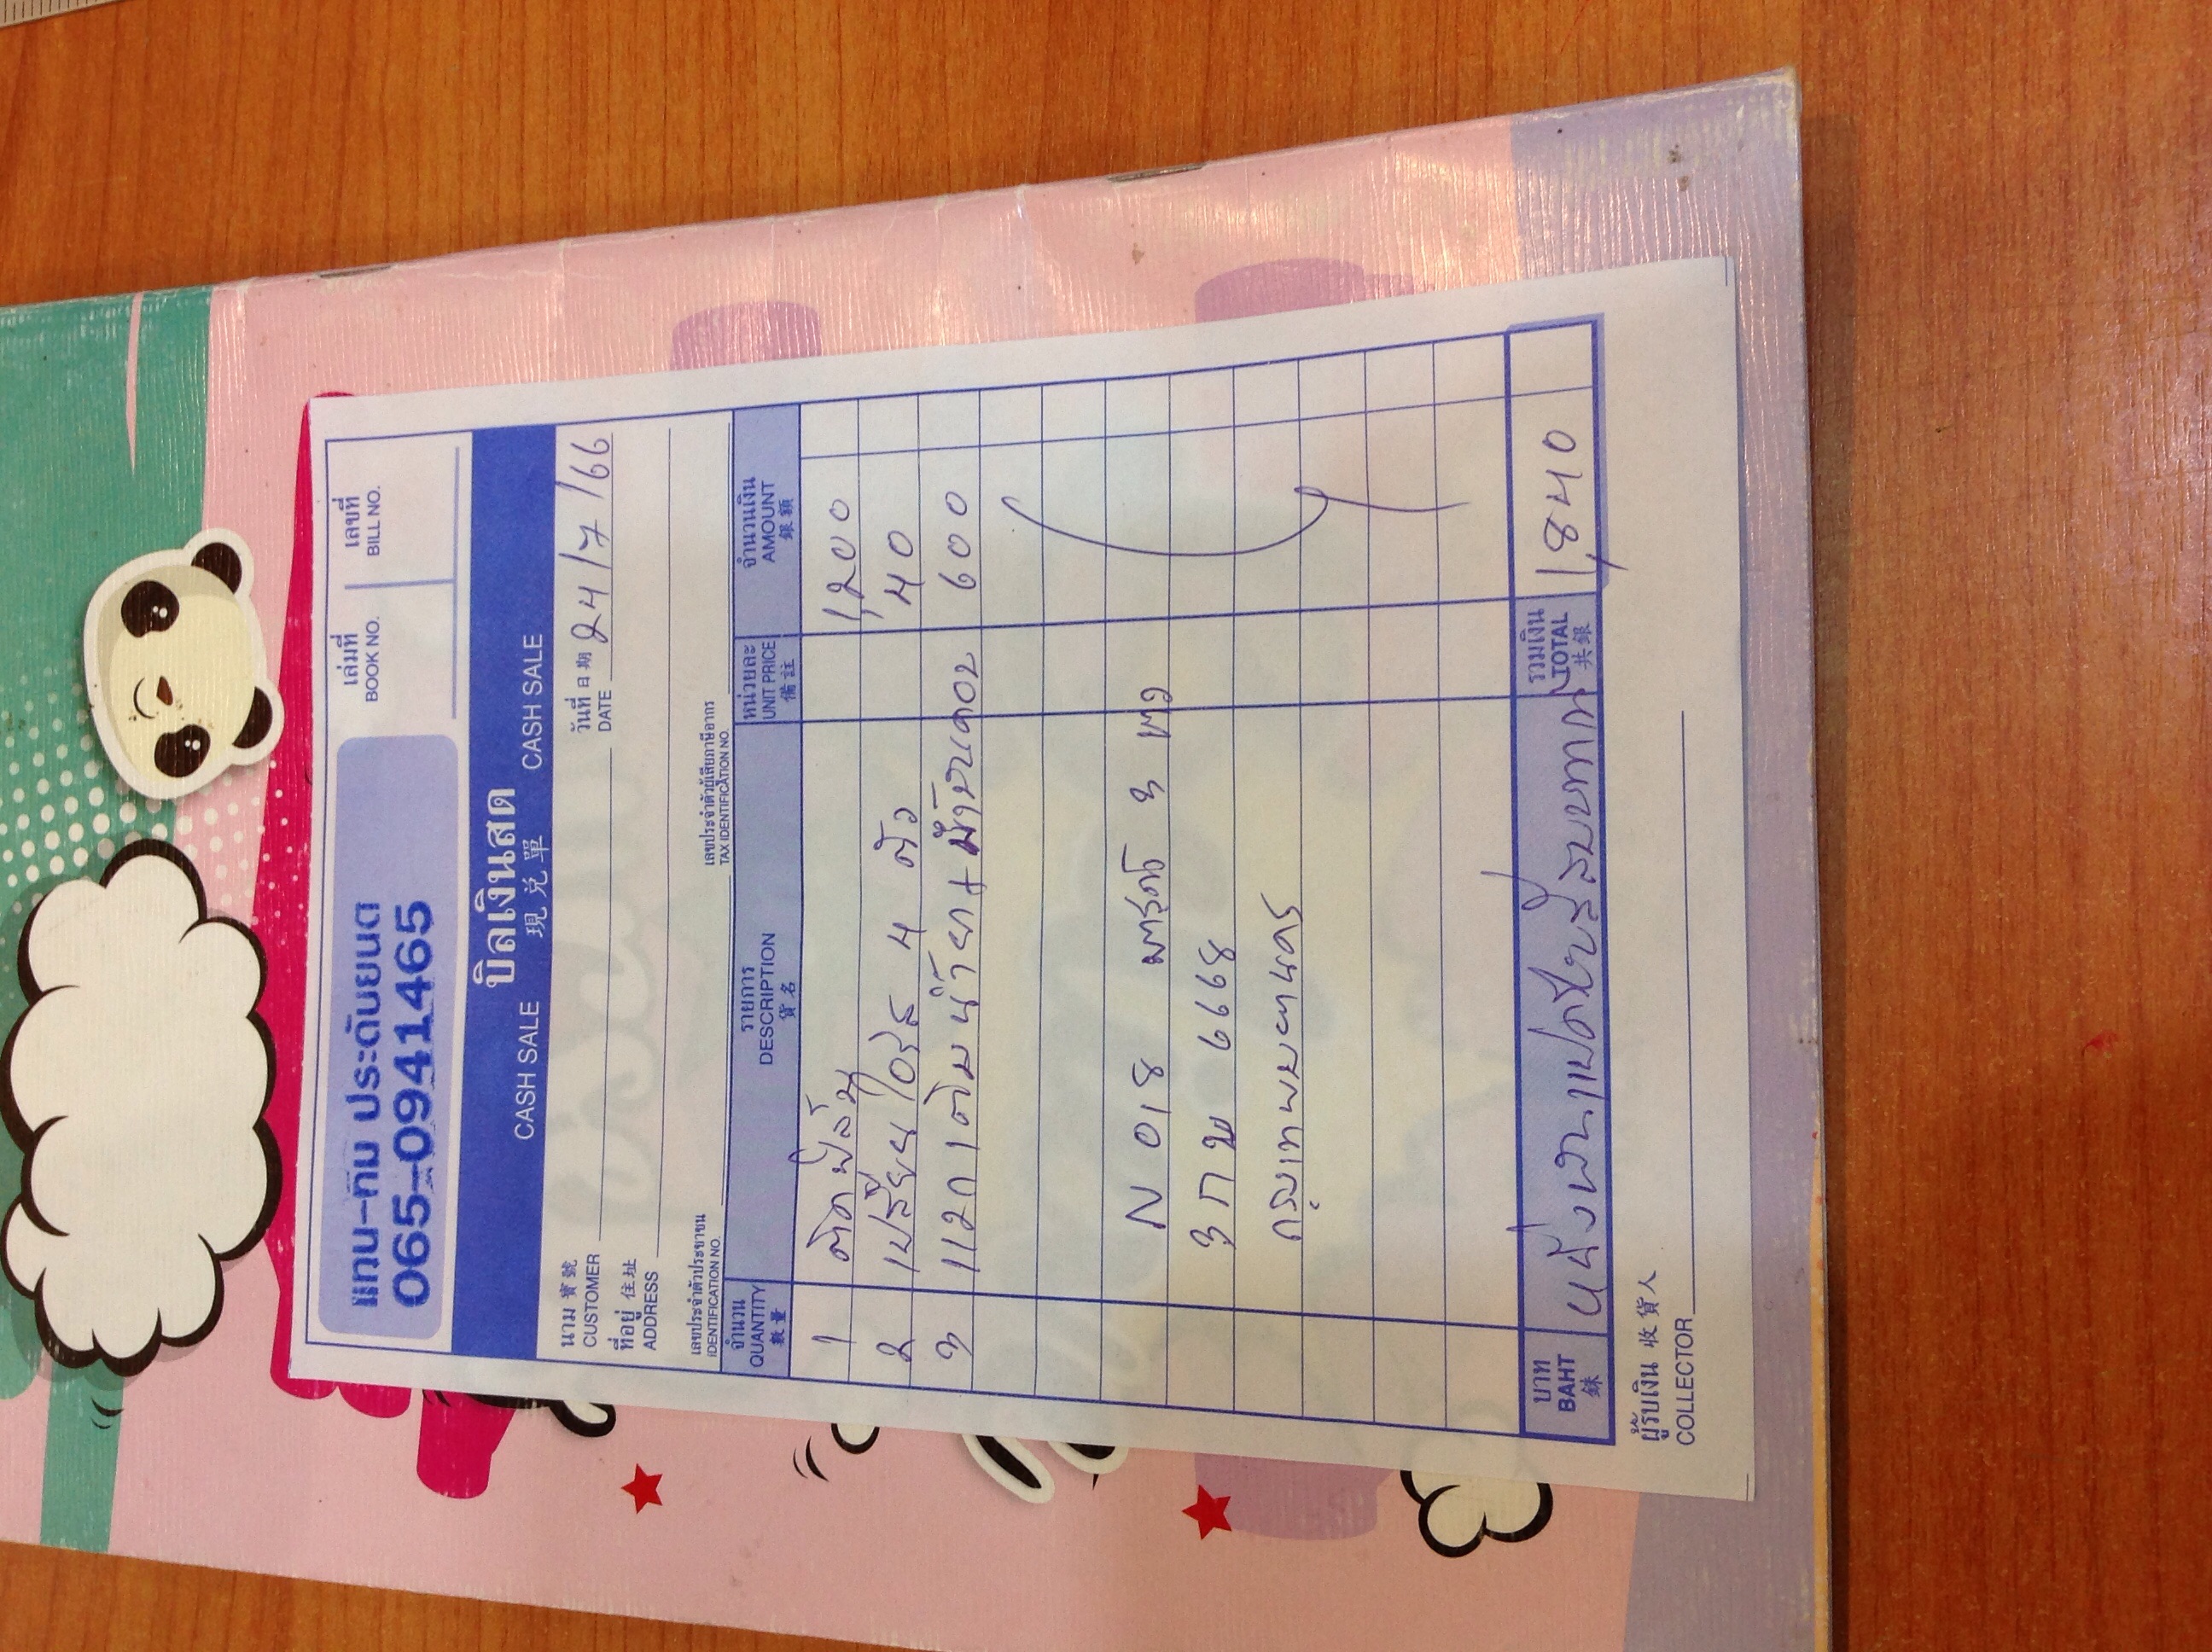 แทน-ทีม ประดับยนต์
065-0941465
เล่มที่ เลขที่
BOOK NO. BILL NO.
บิลเงินสด
CASH SALE 現兌單 CASH SALE
นาม 寶號 วันที่ 日期
CUSTOMER DATE 24/7/66
ที่อยู่ 住址
ADDRESS
เลขประจำตัวประชาชน เลขประจำตัวผู้เสียภาษีอากร
IDENTIFICATION NO. TAX IDENTIFICATION NO.
จำนวน รายการ หน่วยละ จำนวนเงิน
QUANTITY DESCRIPTION UNIT PRICE AMOUNT
數量 貨名 備註 銀額
1 ติดฟิล์ม 1,200
2 เปลี่ยน 4 ตัว 40
3 เติมน้ำยา+ 600
N 018 3 เพลา
3 กข 6668
กรุงเทพมหานคร
บาท หนึ่งพันแปดร้อยสี่สิบบาท รวมเงิน 1,840
BAHT TOTAL
銖 共銀
ผู้รับเงิน 收貨人
COLLECTOR